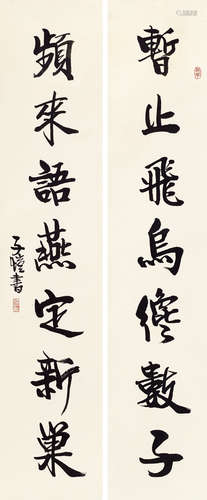 暫止飛烏纔數子
頻來語燕定新巢
子愷書